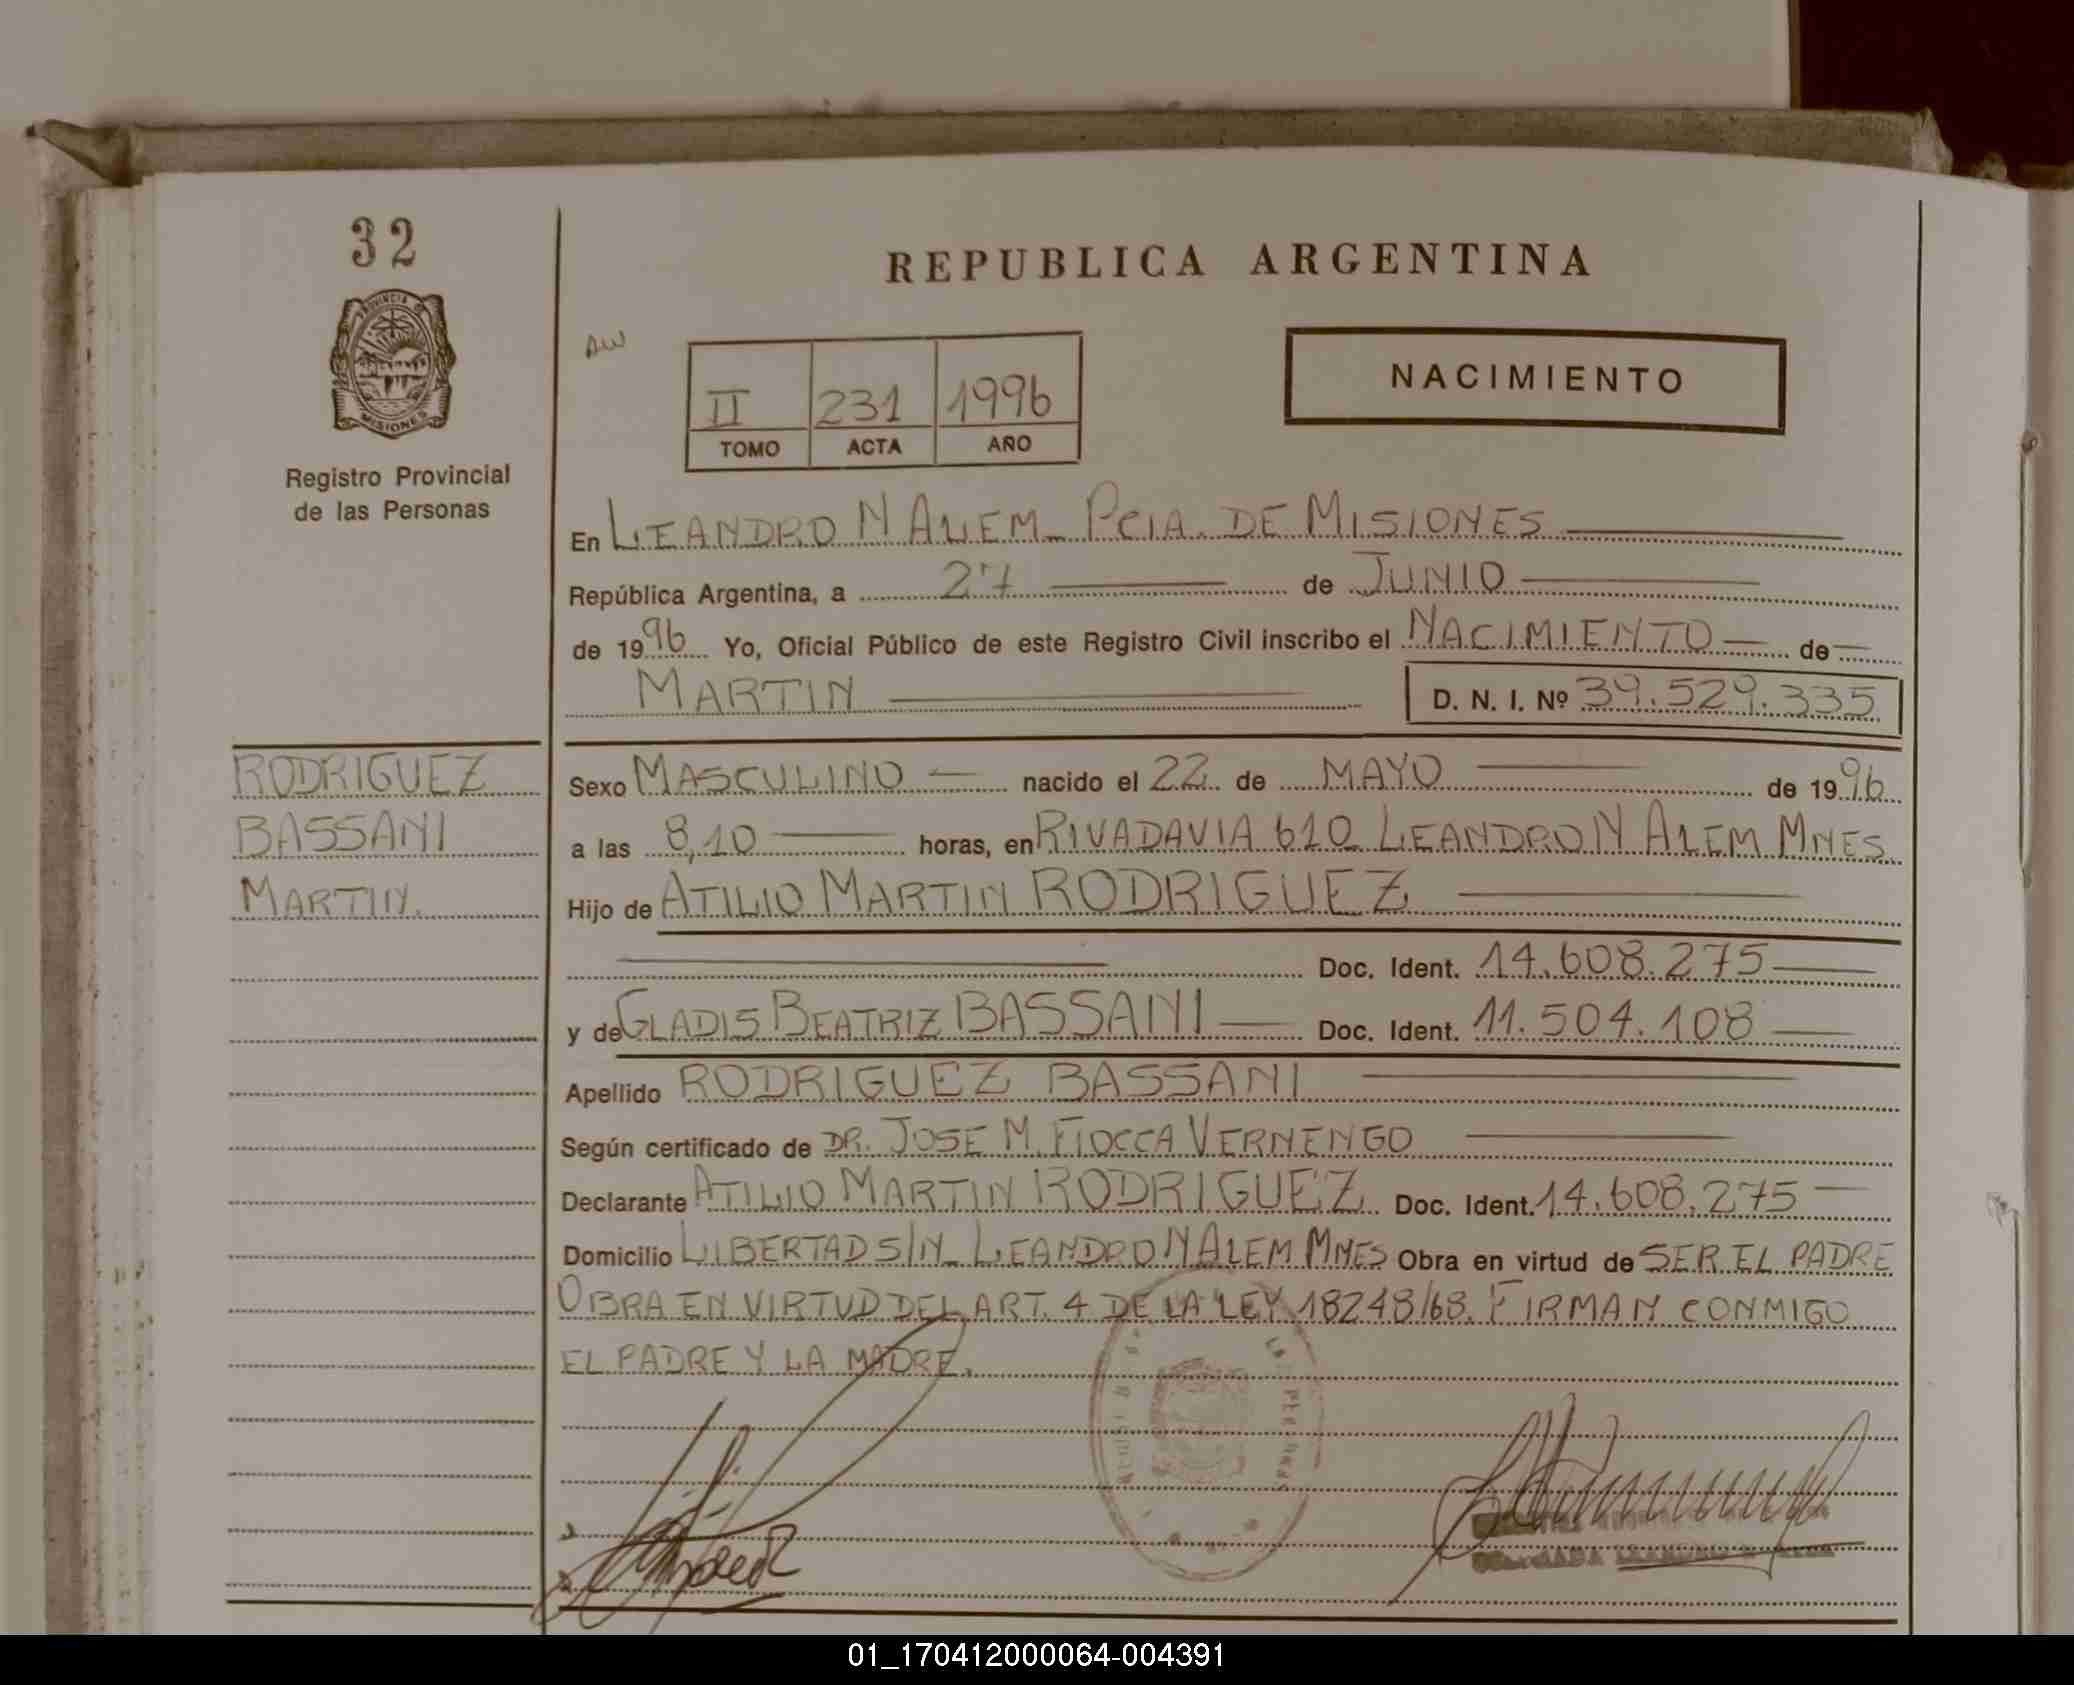 32
REPUBLICA ARGENTINA
PROVINCIA DE
MISIONES
Registro Provincial
de las Personas
AW
II 231 1996
TOMO ACTA AÑO
NACIMIENTO
En LEANDRO N ALEM PCIA. DE MISIONES
República Argentina, a 27 de JUNIO
de 1996 Yo, Oficial Público de este Registro Civil inscribo el NACIMIENTO de
MARTIN D. N. I. Nº 39.529.335
RODRIGUEZ
BASSANI
MARTIN.
Sexo MASCULINO nacido el 22 de MAYO de 1996
a las 8,10 horas, en RIVADAVIA 610 LEANDRO N ALEM MNES.
Hijo de ATILIO MARTIN RODRIGUEZ
Doc. Ident. 14.608.275
y de GLADIS BEATRIZ BASSANI Doc. Ident. 11.504.108
Apellido RODRIGUEZ BASSANI
Según certificado de DR. JOSE M. FIOCCA VERNENGO
Declarante ATILIO MARTIN RODRIGUEZ Doc. Ident. 14.608.275
Domicilio LIBERTAD S/N LEANDRO N ALEM MNES Obra en virtud de SER EL PADRE
OBRA EN VIRTUD DEL ART. 4 DE LA LEY 18248/68. FIRMAN CONMIGO
EL PADRE Y LA MADRE.
01_170412000064-004391